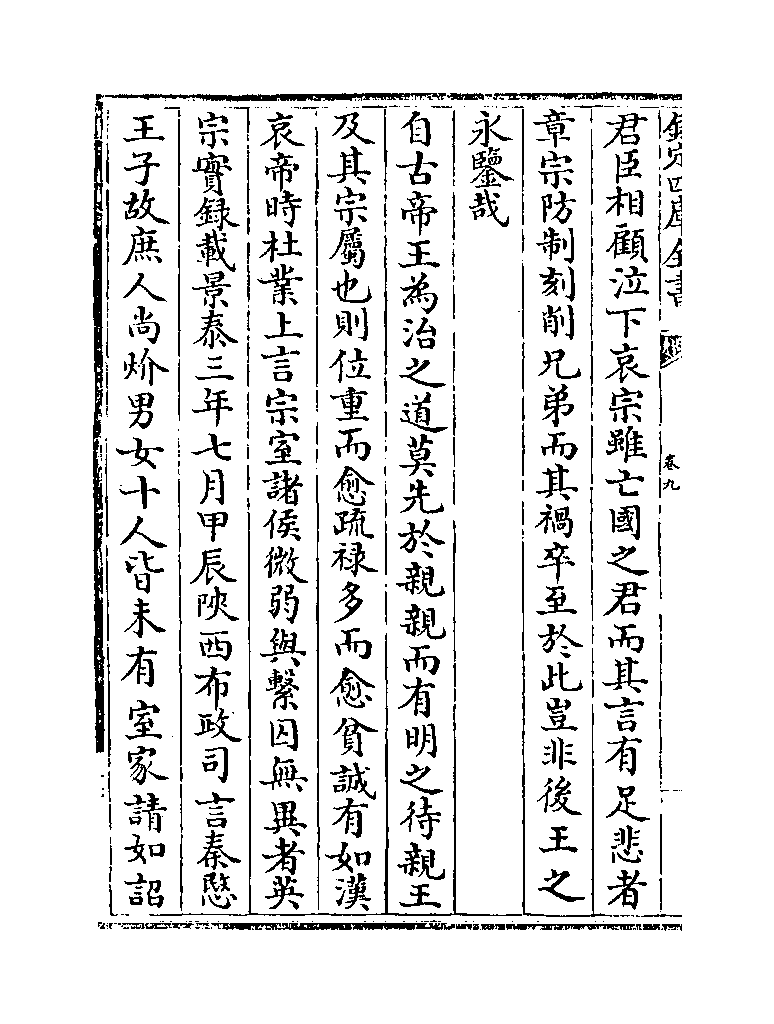 欽定四庫全書
卷九
君臣相顧泣下哀宗雖亡國之君而其言有足悲者
章宗防制刻削兄弟而其禍卒至於此豈非後王之
永鑒哉
自古帝王為治之道莫先於親親而有明之待親王
及其宗屬也則位重而愈疏祿多而愈貧誠有如漢
哀帝時杜業上言宗室諸侯微弱與繫囚無異者英
宗實録載景泰三年七月甲辰陜西布政司言秦愍
王子故庶人尚炌男女十人皆未有室家請如詔